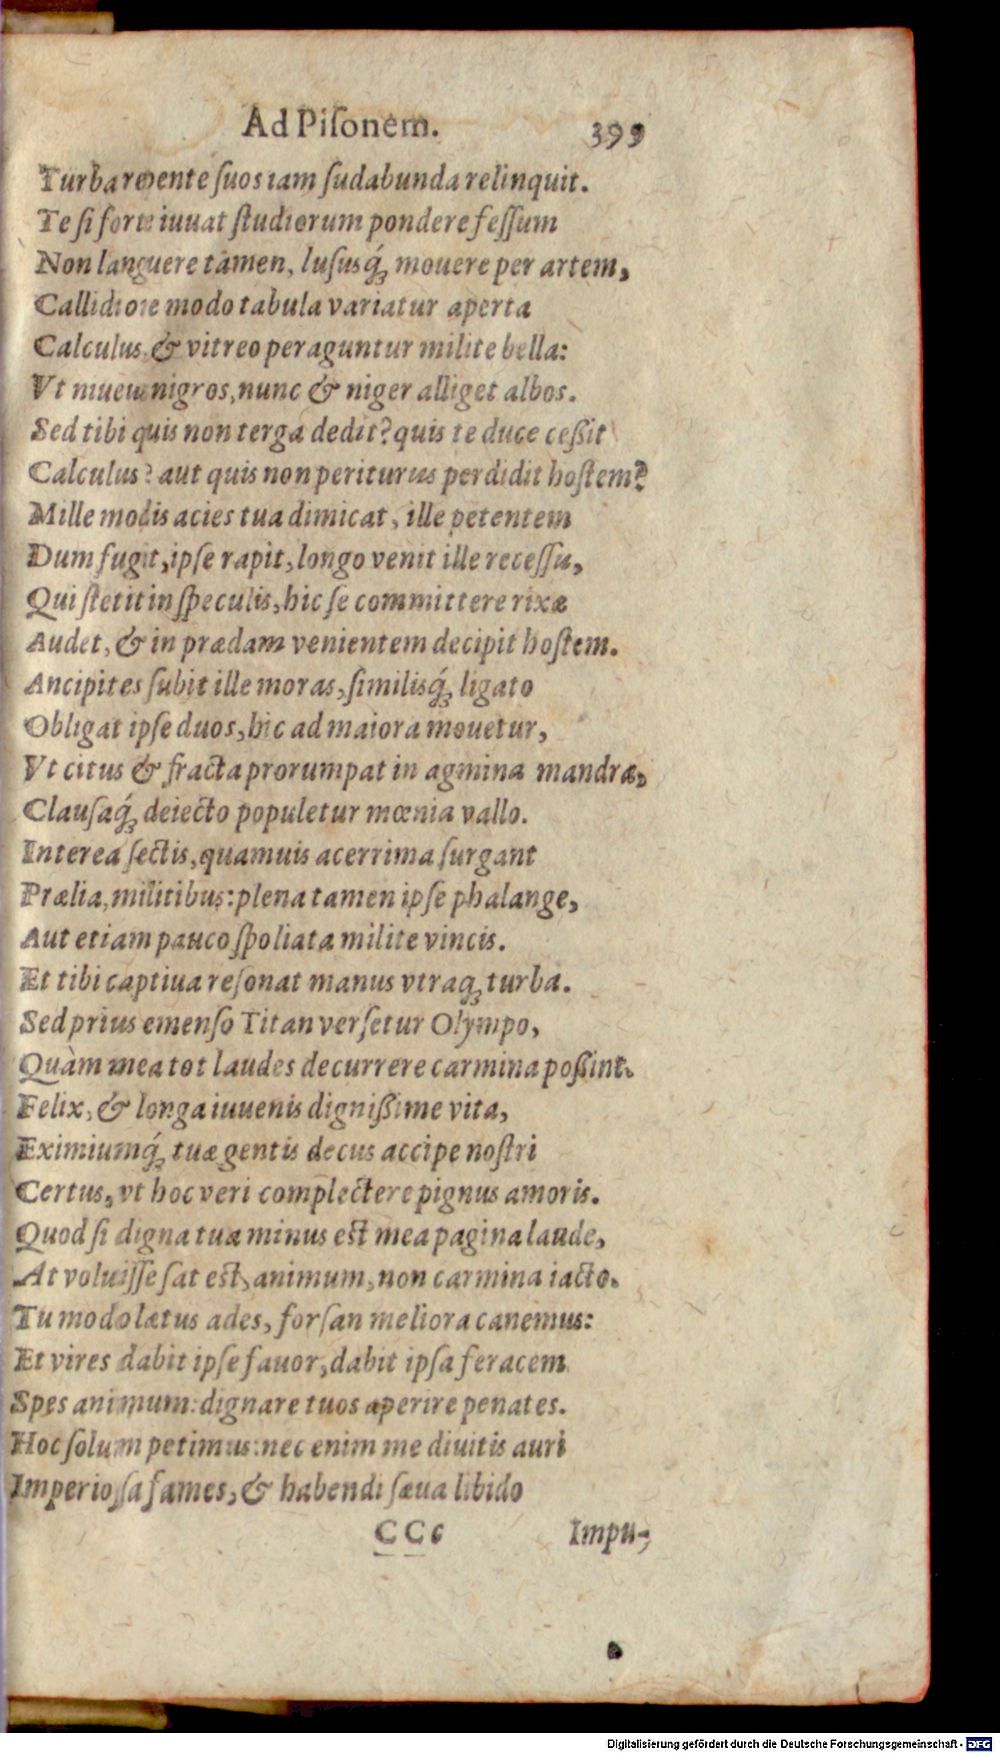 Ad Piſonem. 399
Turba repente ſuos iam ſudabunda relinquit.
Te ſi forte iuuat ſtudiorum pondere feſſum
Non languere tamen, luſusq́; mouere per artem,
Callidiore modo tabula variatur aperta
Calculus, & vitreo peraguntur milite bella:
Vt niueus nigros, nunc & niger alliget albos.
Sed tibi quis non terga dedit? quis te duce ceßit
Calculus? aut quis non periturus perdidit hoſtem?
Mille modis acies tua dimicat, ille petentem
Dum fugit, ipſe rapit, longo venit ille receſſu,
Qui ſtetit in ſpeculis, hic ſe committere rixæ
Audet, & in prædam venientem decipit hoſtem.
Ancipites ſubit ille moras, ſimilisq́; ligato
Obligat ipſe duos, hic ad maiora mouetur,
Vt citus & fracta prorumpat in agmina mandra,
Clauſaq́; deiecto populetur mœnia vallo.
Interea ſectis, quamuis acerrima ſurgant
Prælia, militibus: plena tamen ipſe phalange,
Aut etiam pauco ſpoliata milite vincis.
Et tibi captiua reſonat manus vtraq; turba.
Sed prius emenſo Titan verſetur Olympo,
Quàm mea tot laudes decurrere carmina poßint.
Felix, & longa iuuenis dignißime vita,
Eximiumq́; tuæ gentis decus accipe noſtri
Certus, vt hoc veri complectere pignus amoris.
Quod ſi digna tua minus eſt mea pagina laude,
At voluiſſe ſat eſt, animum, non carmina iacto.
Tu modo lætus ades, forſan meliora canemus:
Et vires dabit ipſe fauor, dabit ipſa feracem
Spes animum: dignare tuos aperire penates.
Hoc ſolum petimus: nec enim me diuitis auri
Imperioſa fames, & habendi ſæua libido
CCc Impu-
Digitalisierung gefördert durch die Deutsche Forschungsgemeinschaft - DFG